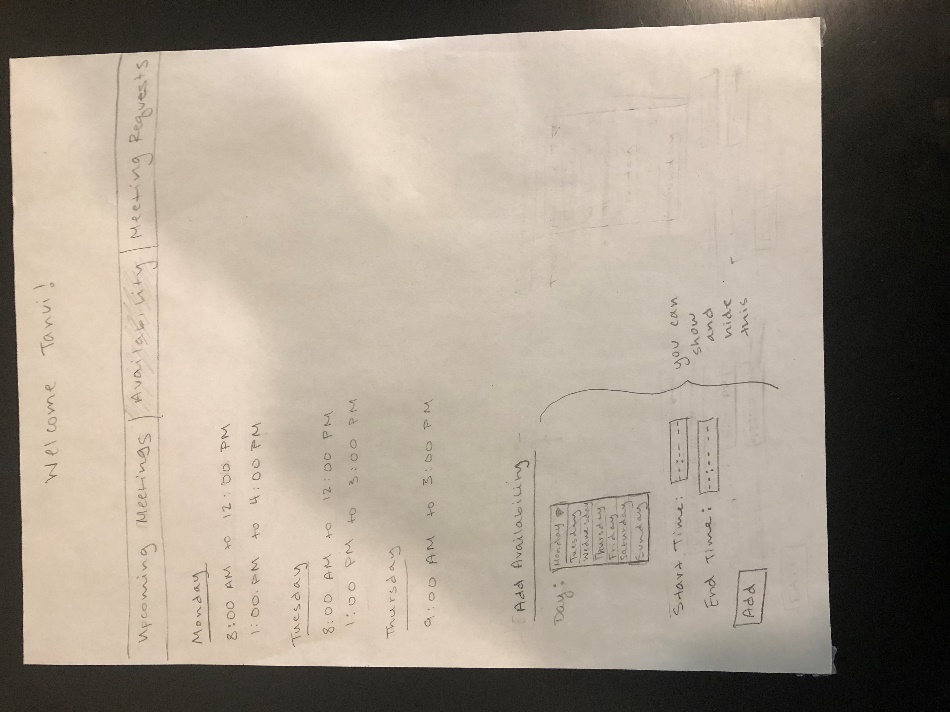 Welcome Tanvi!
Upcoming Meetings | Availability | Meeting Requests
Monday
8:00 AM to 12:00 PM
1:00 PM to 4:00 PM
Tuesday
8:00 AM to 12:00 PM
1:00 PM to 3:00 PM
Thursday
9:00 AM to 3:00 PM
Add Availability -
Day: Monday
Tuesday
Wednesday
Thursday
Friday
Saturday
Sunday
Start Time: --:-- --
End Time: --:-- --
Add
you can
show
and
hide
this